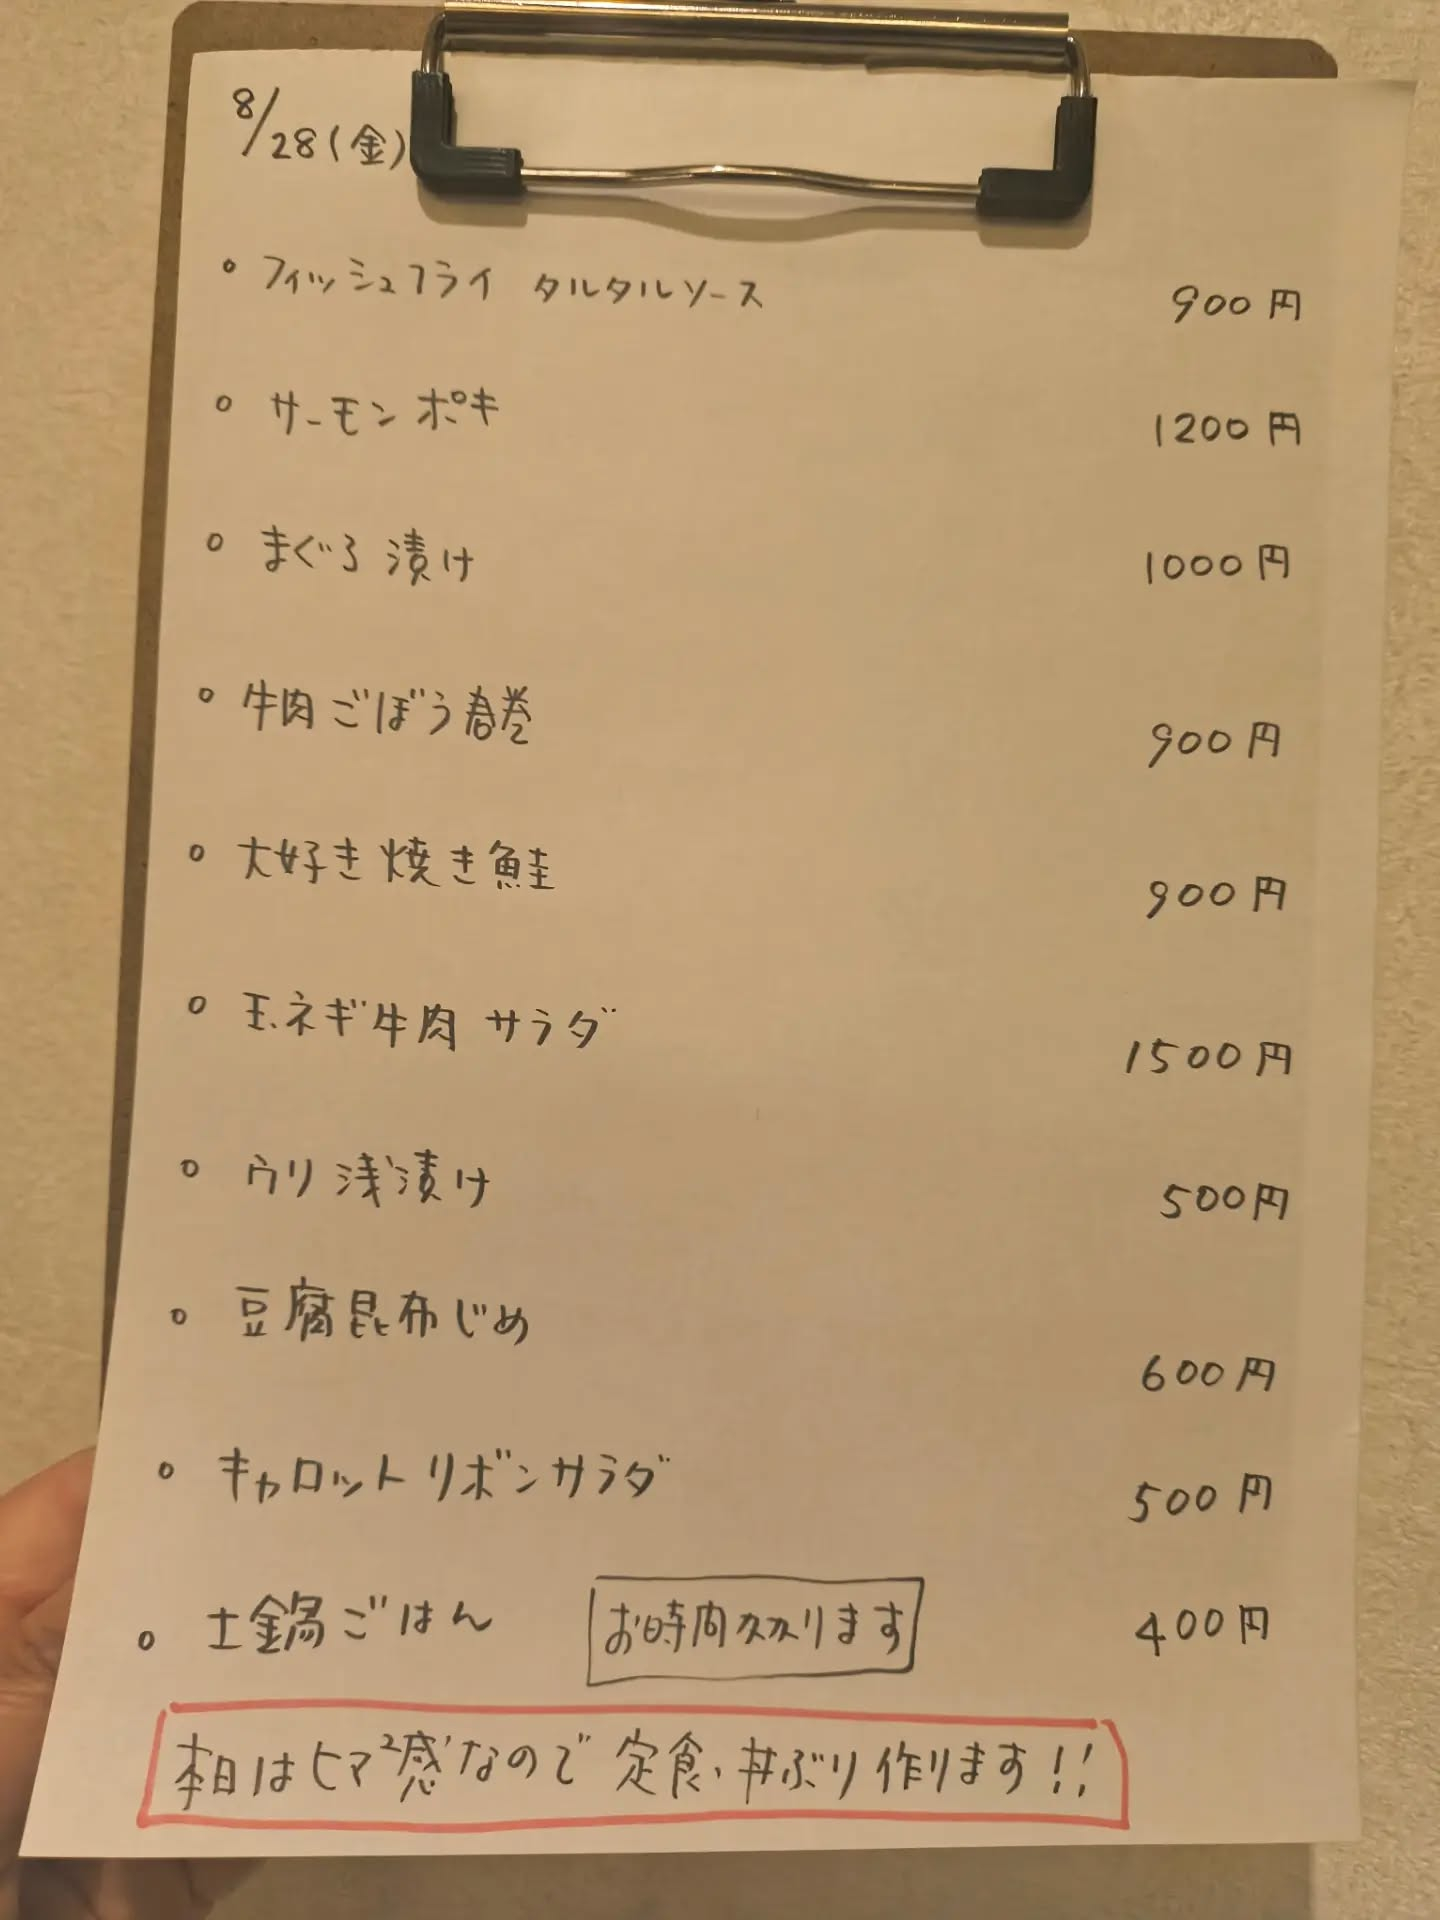 8/28(金)
・フィッシュフライ タルタルソース 900円
・サーモンポキ 1200円
・まぐろ漬け 1000円
・牛肉ごぼう春巻 900円
・大好き焼き鮭 900円
・玉ネギ牛肉サラダ 1500円
・ウリ浅漬け 500円
・豆腐昆布じめ 600円
・キャロットリボンサラダ 500円
・土鍋ごはん お時間掛ります 400円
本日はヒマ²感なので定食、丼ぶり作ります!!